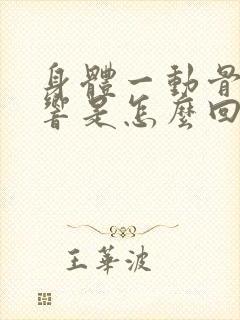 身體一動骨
響是怎麼回
王華波